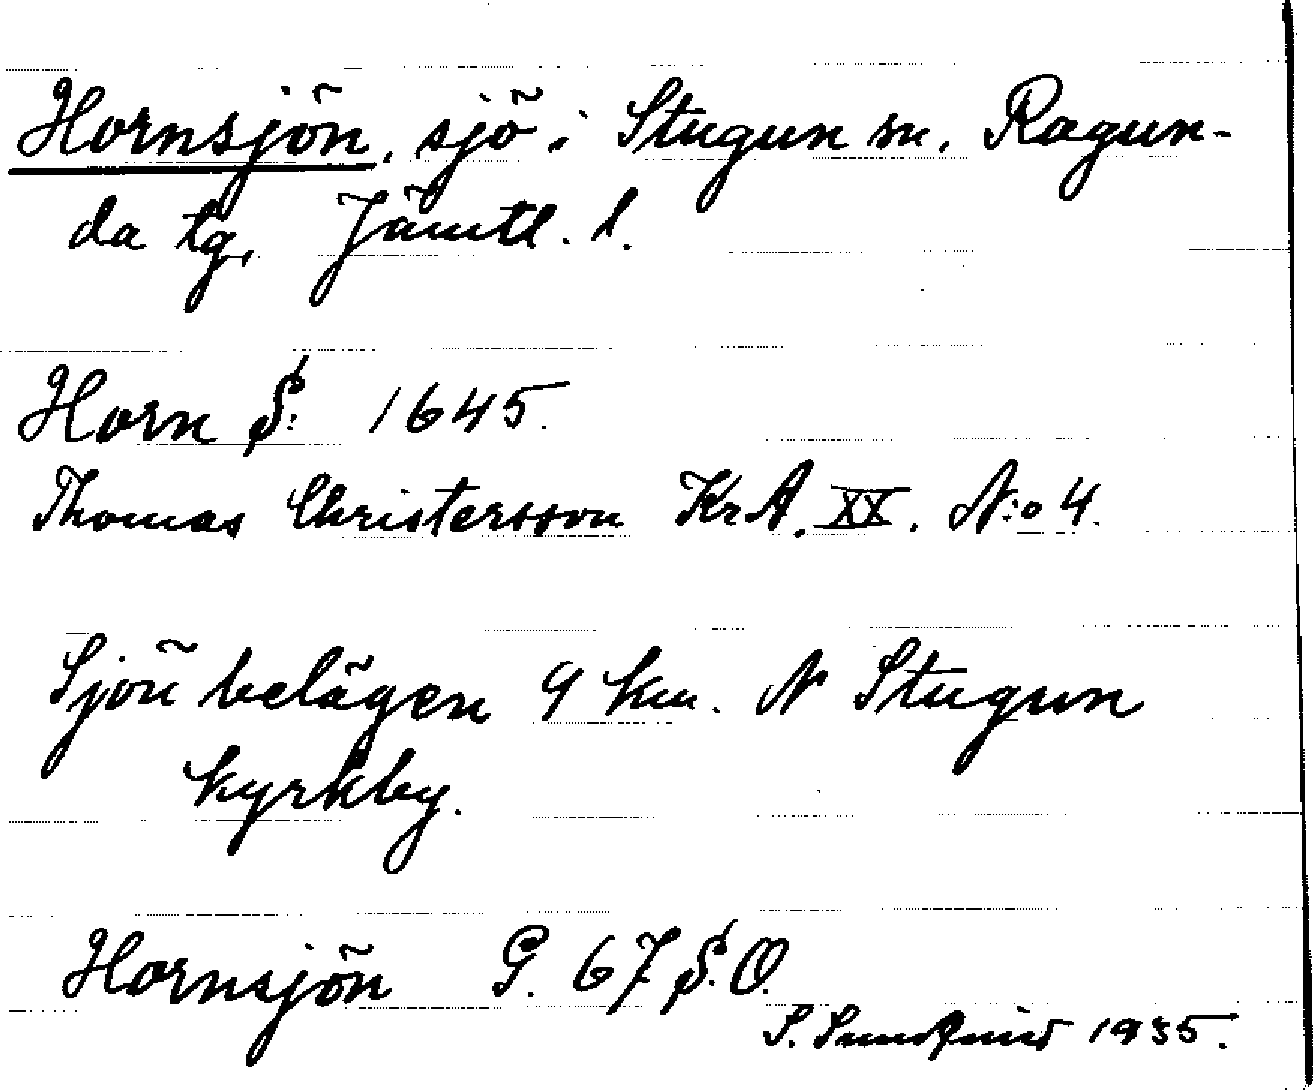 Hornsjön, sjö i Stugun sn. Ragun-
da tg, Jämtl. l.
Horn S: 1645.
Thomas Christersson KrA. XX. N:o 4.
Sjön belägen 9 km. N Stugun
kyrkby.
Hornsjön G. 67 S.O.
S. Sundqvist 1935.